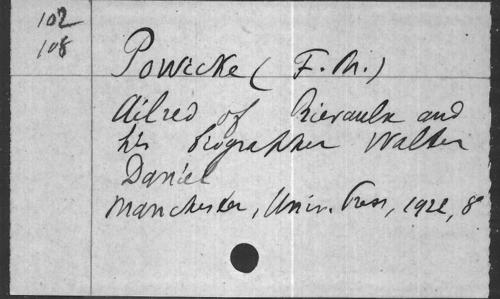 102
108
Powicke (F. M.)
Ailred of Rievaulx and
his biographer Walter
Daniel
Manchester, Univ. Press, 1922, 8°